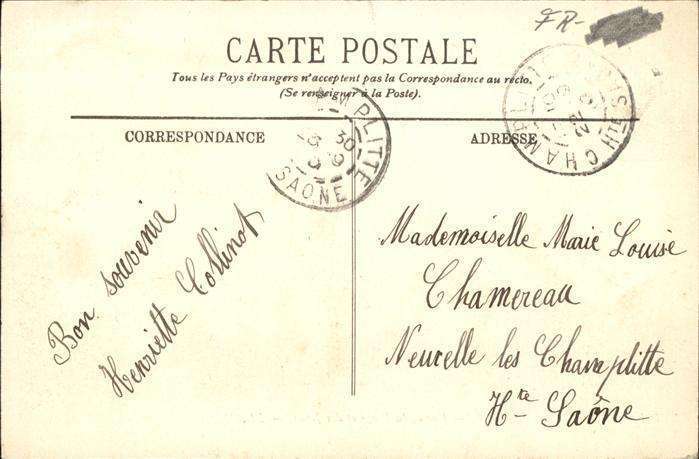 FR-
CARTE POSTALE
Tous les Pays étrangers n'acceptent pas la Correspondance au recto.
(Se renseigner à la Poste).
CORRESPONDANCE
ADRESSE
PLITTE
30
SAONE
CHAMPL
Hte
Bon souvenir
Henriette Collinot
Mademoiselle Marie Louise
Chamereau
Neuvelle les Champlitte
Hte Saône